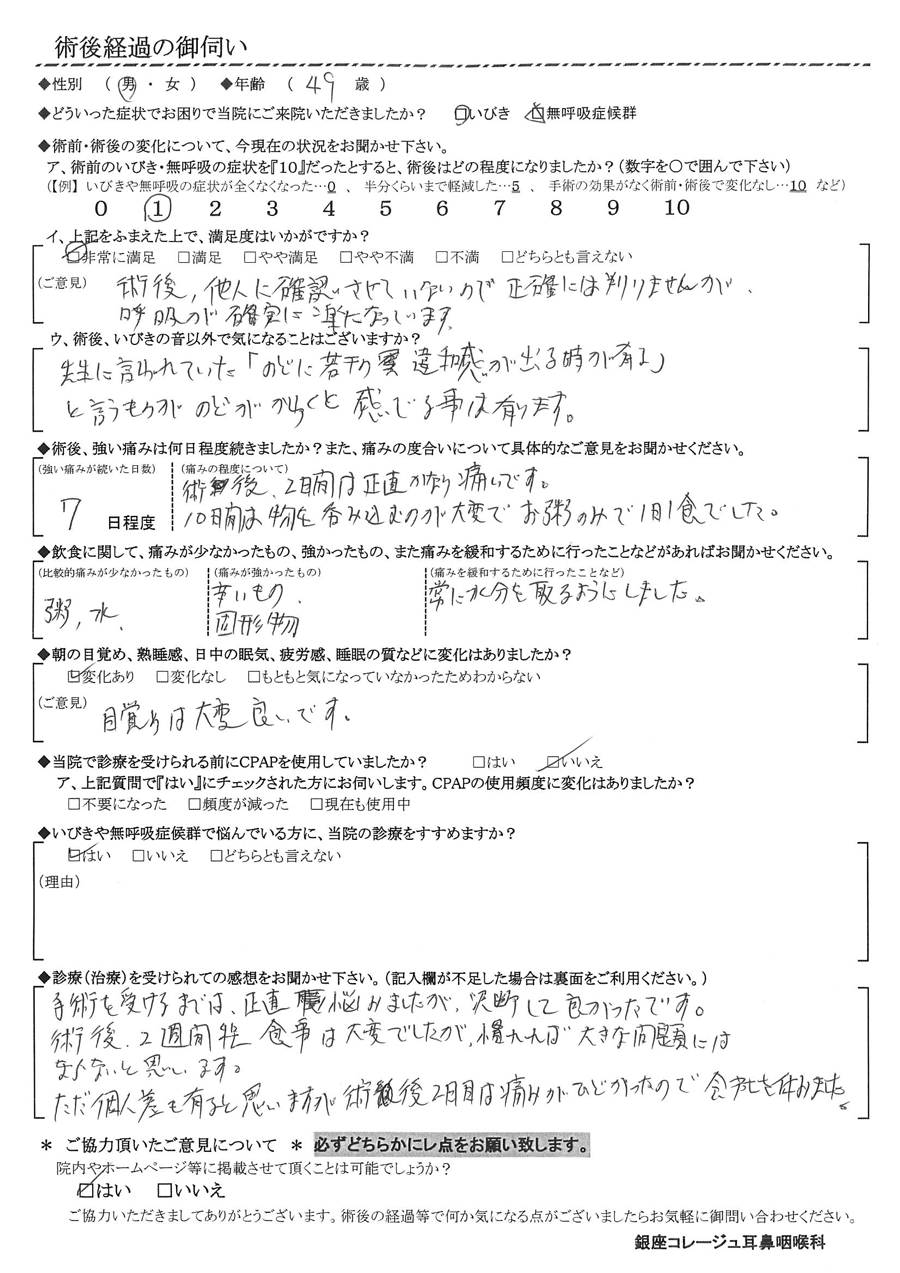 術後経過の御伺い
◆性別 （ 男 ・ 女 ） ◆年齢 （ 49 歳 ）
◆どういった症状でお困りで当院にご来院いただきましたか？ □いびき □無呼吸症候群
◆術前・術後の変化について、今現在の状況をお聞かせ下さい。
ア、術前のいびき・無呼吸の症状を『10』だったとすると、術後はどの程度になりましたか？（数字を〇で囲んで下さい）
（【例】 いびきや無呼吸の症状が全くなくなった…0 、 半分くらいまで軽減した…5 、 手術の効果がなく術前・術後で変化なし…10 など）
0 1 2 3 4 5 6 7 8 9 10
イ、上記をふまえた上で、満足度はいかがですか？
□非常に満足 □満足 □やや満足 □やや不満 □不満 □どちらとも言えない
（ご意見） 術後，他人に確認させていないので正確には判りませんが、
呼吸が確実に楽になっています。
ウ、術後、いびきの音以外で気になることはございますか？
先生に言われていた「のどに若干の違和感が出る時が有る」
と言うものが のどが からくと 感じでる事は有ります。
◆術後、強い痛みは何日程度続きましたか？また、痛みの度合いについて具体的なご意見をお聞かせください。
（強い痛みが続いた日数） （痛みの程度について）
術後、2日間は正直かなり痛いです。
7 日程度 10日間は物を呑み込むのが大変でお粥のみで1日1食でした。
◆飲食に関して、痛みが少なかったもの、強かったもの、また痛みを緩和するために行ったことなどがあればお聞かせください。
（比較的痛みが少なかったもの） （痛みが強かったもの） （痛みを緩和するために行ったことなど）
粥，水、 辛いもの、 常に水分を取るようにしました。
固形物
◆朝の目覚め、熟睡感、日中の眠気、疲労感、睡眠の質などに変化はありましたか？
□変化あり □変化なし □もともと気になっていなかったためわからない
（ご意見） 目覚めは大変良いです。
◆当院で診療を受けられる前にCPAPを使用していましたか？ □はい □いいえ
ア、上記質問で『はい』にチェックされた方にお伺いします。CPAPの使用頻度に変化はありましたか？
□不要になった □頻度が減った □現在も使用中
◆いびきや無呼吸症候群で悩んでいる方に、当院の診療をすすめますか？
□はい □いいえ □どちらとも言えない
（理由）
◆診療（治療）を受けられての感想をお聞かせ下さい。（記入欄が不足した場合は裏面をご利用ください。）
手術を受けるまでは、正直悩みましたが，決断して良かったです。
術後、2週間程 食事は大変でしたが，慣れれば 大きな問題には
ならないと思います。
ただ個人差も有ると思いますが術後2日目は痛みがひどかったので会社を休みました。
＊ ご協力頂いたご意見について ＊ 必ずどちらかにレ点をお願い致します。
院内やホームページ等に掲載させて頂くことは可能でしょうか？
□はい □いいえ
ご協力いただきましてありがとうございます。術後の経過等で何か気になる点がございましたらお気軽に御問い合わせください。
銀座コレージュ耳鼻咽喉科